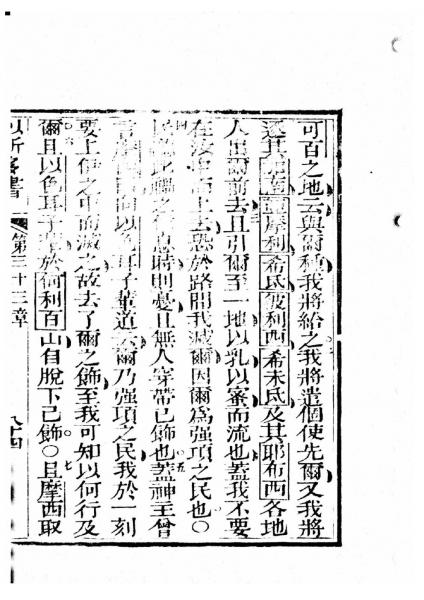 可百之地云與爾種我將給之我將遣個使先爾又我將
逐其迦南亞摩利希氐彼利西希未氐及其耶布西各地
人出爾前去且引爾至一地以乳以蜜而流也蓋我不要
在汝中而上去恐於路間我滅爾因爾為强項之民也○
此 時則憂且無人穿帶己飾也蓋神主曾
言 以色耳子輩道云爾乃强項之民我於一刻
要上伊之中而滅之故去了爾之飾至我可知以何行及
爾且以色耳子輩於何利百山自脫下己飾○且摩西取
第三十三章